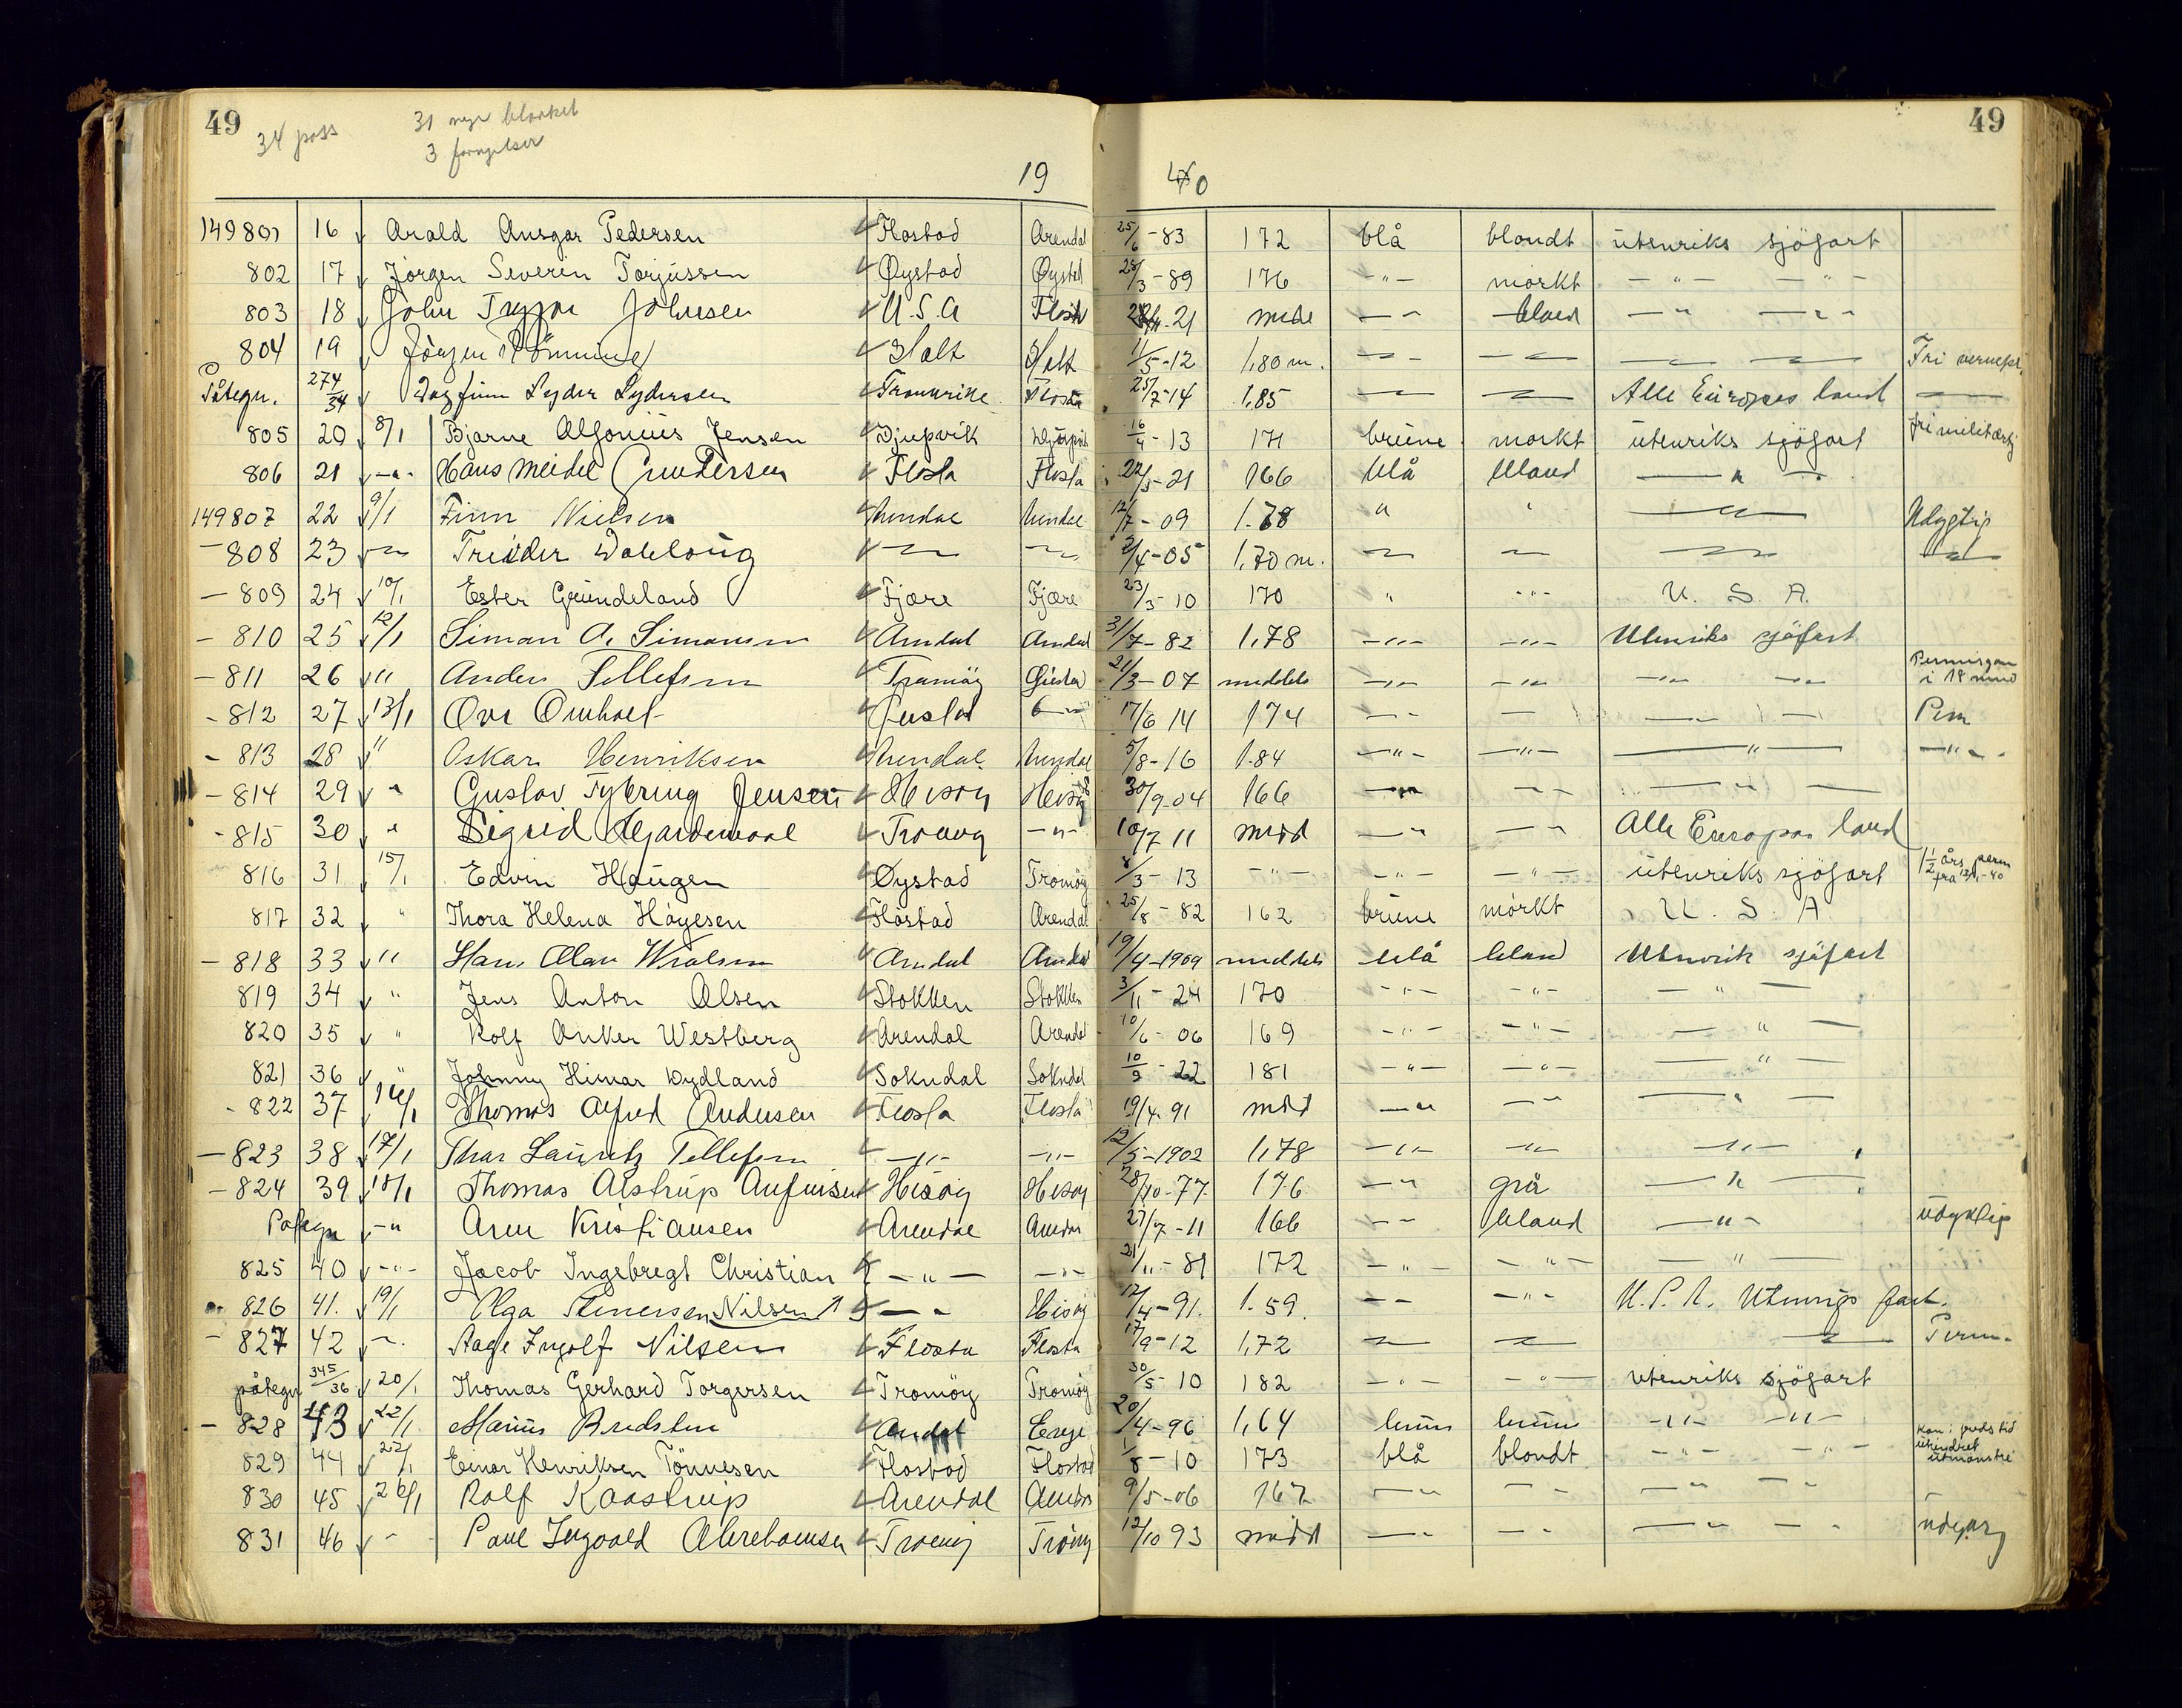 49 49
34 pass 31 nye blanket
3 fornyelser
19 40
149801 16 Arald Ansgar Pedersen Flostad Arendal 25/6-83 172 blå blondt utenriks sjöfart
802 17 Jörgen Severin Torjussen Øystad Øystd 28/3-89 176 -"- mörkt -"- -"-
803 18 John Tryggve Johnsen U.S.A Flosta -21 midd -"- bland -"- -"-
804 19 Jörgen Holt Holt 11/5-12 1,80 m. -"- -"- -"- -"- Fri vernepl.
Påtegn. 274/34 Dagfinn Lyder Lydersen Flosta 25/7-14 1,85 -"- -"- Alle Europas land -"-
805 20 8/1 Bjarne Alfonius Jensen Djupvik Djupvik 16/4-13 171 brune mörkt utenriks sjöfart fri militærtj
806 21 -"- Hans Meidel Gundersen Flosta Flosta 22/5-21 166 blå bland -"-
149807 22 9/1 Finn Nielsen Arendal Arendal 12/7-09 1.78 " " -"- Udygtig
- 808 23 -"- Dalelong -"- -"- 2/4-05 1,70 m. -"- -"- -"- -"-
- 809 24 10/1 Ester Grundeland Fjære Fjære 23/3-10 170 " -"- U.S.A.
- 810 25 12/1 Simon A. Simonsen Arndal Arndal 31/7-82 1,78 -"- -"- Utenriks sjöfart
- 811 26 " Anders Tellefsen Tromöy Gjestad 21/3-07 middels -"- -"- -"- -"- Permisjon i 18 mnd
- 812 27 13/1 Ove Omholt -"- 17/6 14 174 -"- -"- -"- Perm
- 813 28 " Oskar Henriksen Arendal Arendal 5/8-16 1.84 -"- -"- -"- -"-
- 814 29 " Gustav Tybring Jensen Hisöy Hisöy 30/9-04 166 -"- -"- -"-
- 815 30 " Sigrid Tromöy -"- 10/7 11 midd -"- -"- Alle Europas land
816 31 15/1 Edvin Haugen Øystad Tromöy 8/3-13 -"- -"- -"- utenriks sjöfart 1½ års perm fra -40
817 32 " Thora Helena Högesen Flostad Arendal 25/8-82 162 brune mörkt U.S.A.
- 818 33 " Hans Olav Arndal Arndal 19/4-1909 middels blå bland Utenriks sjöfart
819 34 " Jens Anton Olsen Stokken Stokken 3/11-24 170 -"- -"- -"-
820 35 " Rolf Anker Westberg Arendal Arendal 10/6-06 169 -"- -"- -"-
821 36 " Johnny Himar Dydland Sokndal Sokndal 10/9-22 181 -"- -"- -"-
- 822 37 16/1 Thomas Alfred Andersen Flosta Flosta 19/4-91 midd -"- -"- -"-
- 823 38 17/1 Thor Lauritz Tellefsen -"- -"- 12/5-1902 1,78 -"- -"- -"-
- 824 39 18/1 Thomas Alstrup Aufinsen Hisöy Hisöy 28/10-77 176 -"- grå -"-
Påtegn -"- Arne Kristiansen Arendal Arendal 27/7-11 166 -"- bland -"- udyktig
825 40 -"- Jacob Ingebregt Christian -"- -"- 21/11-89 172 -"- -"- -"-
826 41. 19/1 Olga Nilsen -"- Hisöy 12/4-91. 1.59. -"- -"- U.S.A. fart.
- 827 42 -"- Aage Ingolf Nilsen Flosta Flosta 17/9-12 1,72 -"- -"- -"- Perm.
påtegn 345/36 20/1 Thomas Gerhard Torgersen Tromöy Tromöy 30/5-10 182 -"- -"- utenriks sjöfart
- 828 43 22/1 Marius Bredsten Arndal Eyje 20/4-96 1,64 brun brun -"- -"- Kan i freds tid uhindret utmönstre
829 44 22/1 Einar Henriksen Tönnesen Flostad Flostad 1/8-10 173 blå blondt -"- -"-
830 45 26/1 Rolf Kaastrup Arendal Arendal 9/5-06 167 -"- -"- -"- -"-
831 46 -"- Paul Ingvald Abrahamsen Tromöy Tromöy 12/10 93 midd -"- -"- -"- -"-